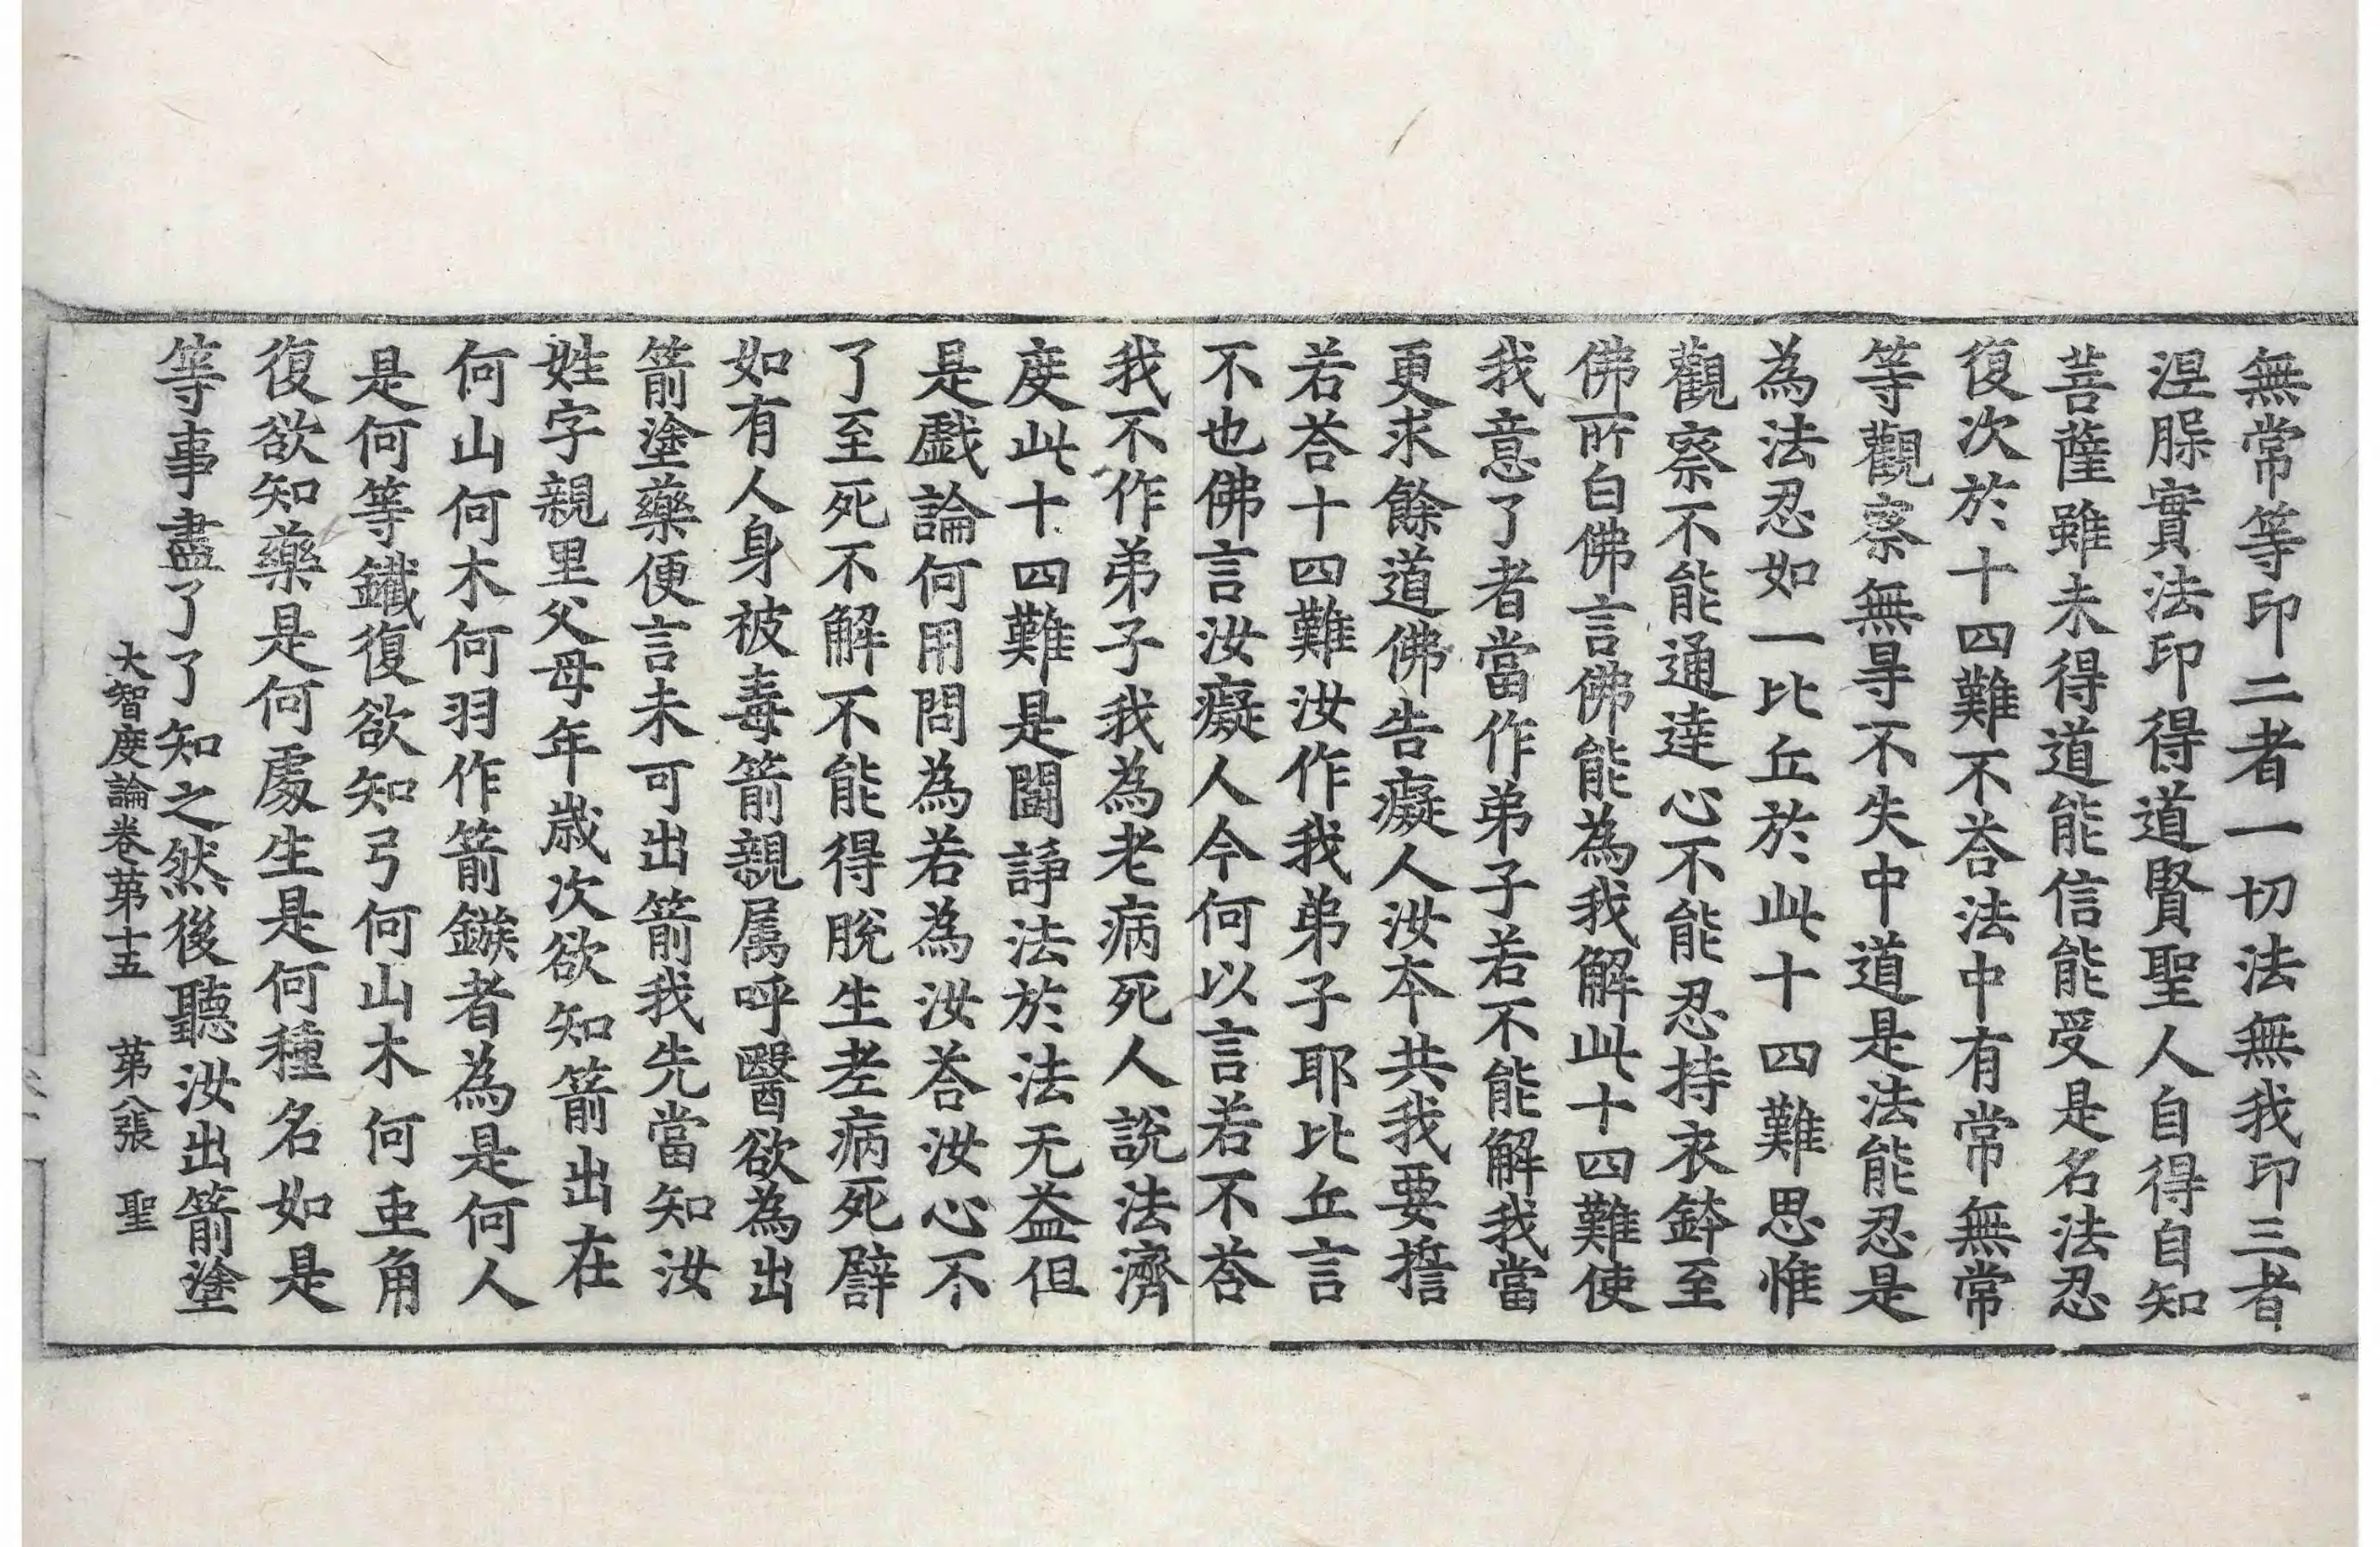 無常等印二者一切法無我印三者
涅槃實法印得道賢聖人自得自知
菩薩雖未得道能信能受是名法忍
復次於十四難不荅法中有常無常
等觀察無㝵不失中道是法能忍是
為法忍如一比丘於此十四難思惟
觀察不能通達心不能忍持衣鉢至
佛所白佛言佛能為我解此十四難使
我意了者當作弟子若不能解我當
更求餘道佛告癡人汝夲共我要誓
若荅十四難汝作我弟子耶比丘言
不也佛言汝癡人今何以言若不荅
我不作弟子我為老病死人說法濟
度此十四難是鬪諍法於法无益但
是戱論何用問為若為汝荅汝心不
了至死不解不能得脫生老病死譬
如有人身被毒箭親属呼醫欲為出
箭塗藥便言未可出箭我先當知汝
姓字親里父母年歲次欲知箭出在
何山何木何羽作箭鏃者為是何人
是何等鐵復欲知弓何山木何虫角
復欲知藥是何處生是何種名如是
等事盡了了知之然後聽汝出箭塗
大智度論卷苐十五 苐八張 聖